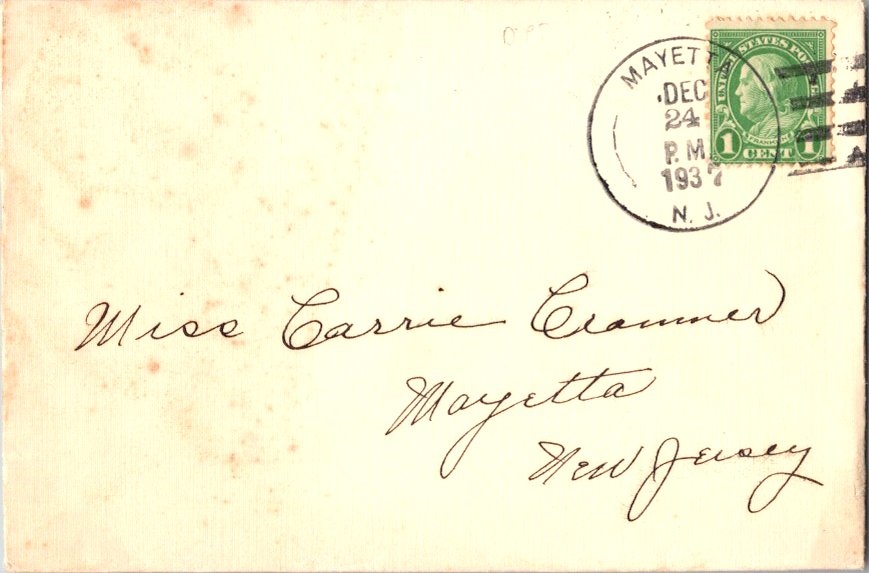 MAYETTA
DEC
24
P.M.
1937
N. J.
UNITED STATES POSTAGE
FRANKLIN
1 CENT 1
Miss Carrie Cranmer
Mayetta
New Jersey